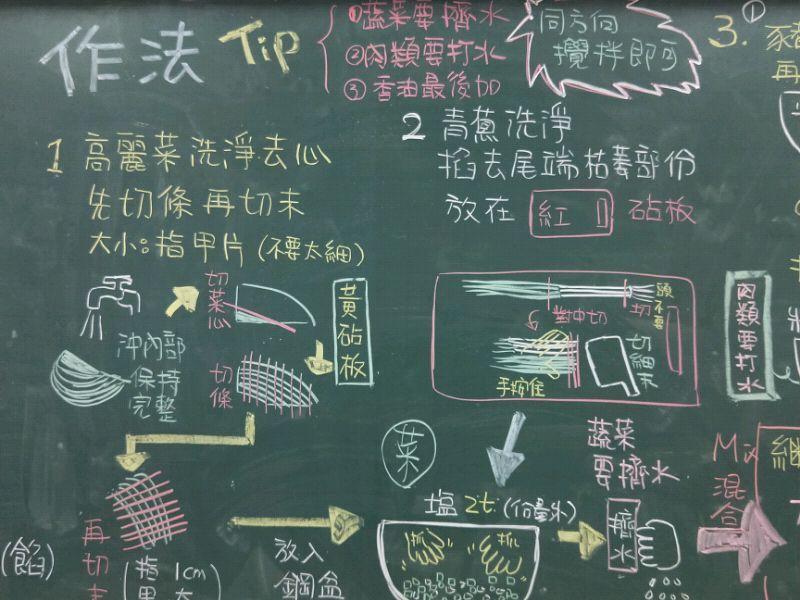 作法 Tip
①蔬菜要擠水
②肉類要打水
③香油最後加
同方向
攪拌即可
1 高麗菜洗淨去心
先切條再切末
大小:指甲片(不要太細)
切菜心
黃砧板
沖內部
保持
完整
切條
再切末
(指甲
1cm
大
(餡)
放入
鋼盆
2 青蔥洗淨
掐去尾端枯萎部份
放在 紅 砧板
頭不要
切
對中切
切細末
手按住
菜
塩 2t (份量外)
抓 抓
蔬菜
要擠水
擠水
Mix
混合
3. ①
再
肉類要打水
繼